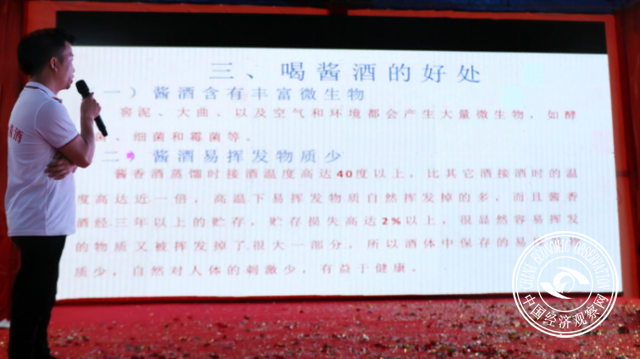 三、喝酱酒的好处
一）酱酒含有丰富微生物
窖泥、大曲、以及空气和环境都会产生大量微生物，如酵
、细菌和霉菌等。
二 酱酒易挥发物质少
酱香酒蒸馏时接酒温度高达40度以上，比其它酒接酒时的温
度高达近一倍，高温下易挥发物质自然挥发掉的多，而且酱香
酒经三年以上的贮存，贮存损失高达2%以上，很显然容易挥发
的物质又被挥发掉了很大一部分，所以酒体中保存的易
质少，自然对人体的刺激少，有益于健康。
酒
中国经济观察网